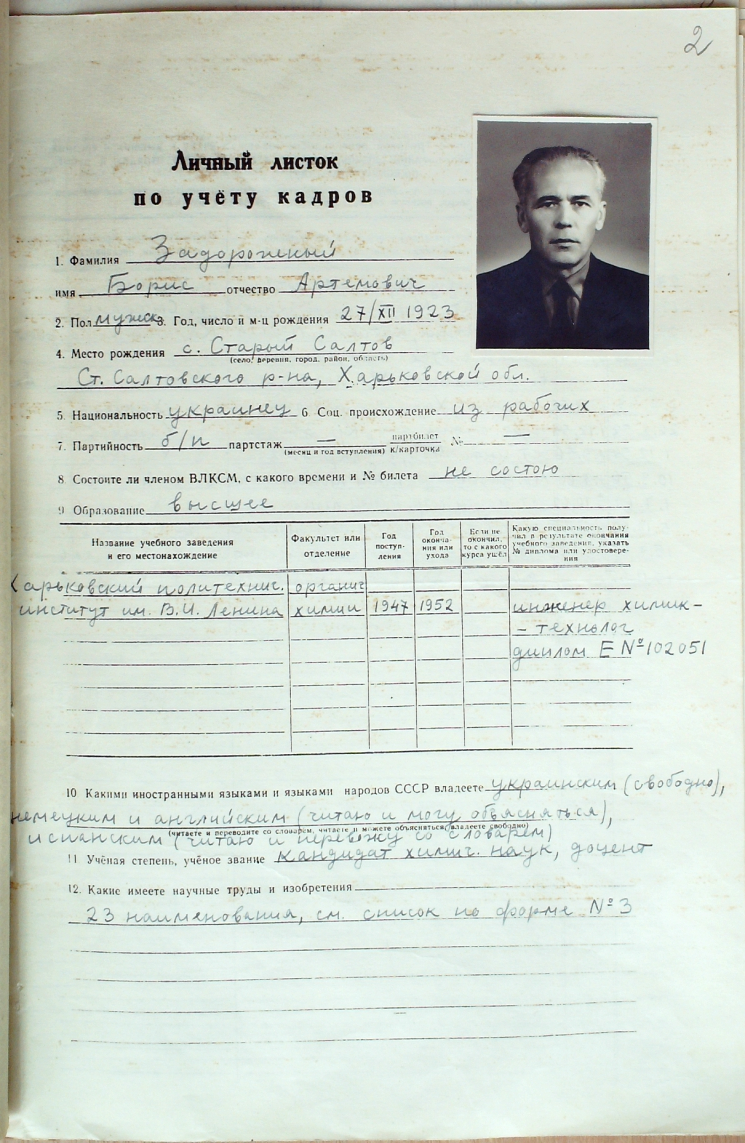 2
Личный листок
по учёту кадров
1. Фамилия Задорожный
имя Борис отчество Артемович
2. Пол мужск 3. Год, число и м-ц рождения 27/XII 1923
4. Место рождения с. Старый Салтов
(село, деревня, город, район, область)
Ст. Салтовского р-на, Харьковской обл.
5. Национальность украинец 6 Соц. происхождение из рабочих
7. Партийность б/п партстаж — партбилет к/карточка № —
(месяц и год вступления)
8 Состоите ли членом ВЛКСМ, с какого времени и № билета не состою
9 Образование высшее
Название учебного заведения и его местонахождение
Факультет или отделение
Год поступ-ления
Год оконча-ния или ухода
Если не окончил, то с какого курса ушёл
Какую специальность полу-чил в результате окончания учебного заведения, указать № диплома или удостовере-ния
Харьковский политехнич. органич
институт им. В.И. Ленина химии 1947 1952 инженер химик-
- технолог
диплом Е № 102051
10 Какими иностранными языками и языками народов СССР владеете украинским (свободно),
немецким и английским (читаю и могу объясняться),
(читаете и переводите со словарём, читаете и можете объясняться, владеете свободно)
испанским (читаю и перевожу со словарем)
11 Учёная степень, учёное звание кандидат химич. наук, доцент
12. Какие имеете научные труды и изобретения
23 наименования, см. список по форме № 3